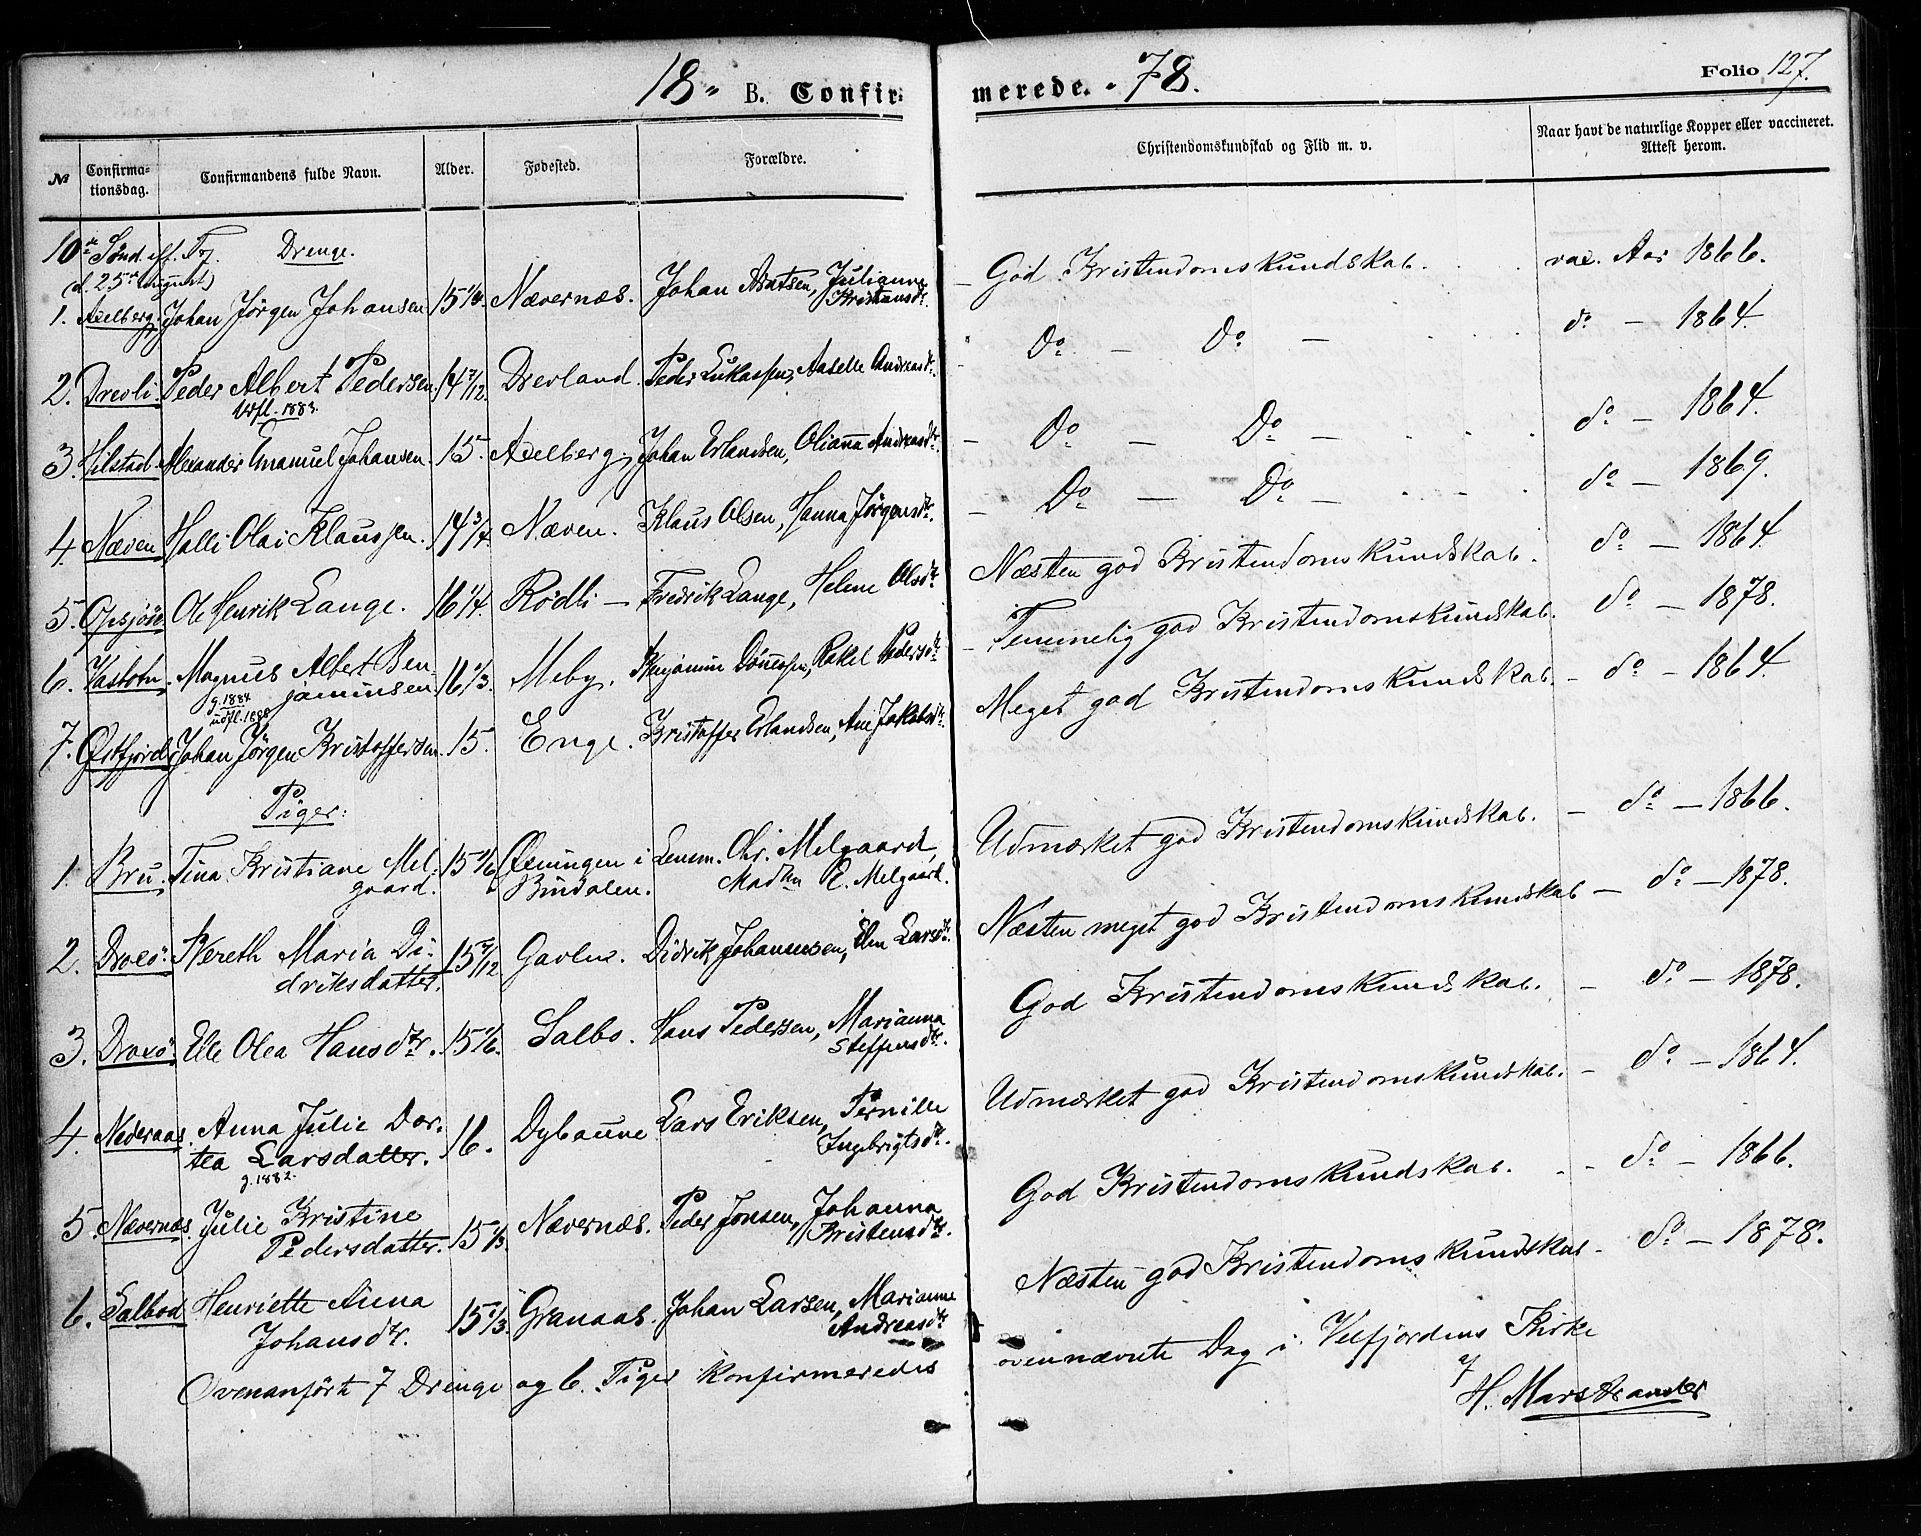 18 B. Confirmerede. 78. Folio 127.
№ Confirmationsdag. Confirmandens fulde Navn. Alder. Fødested. Forældre. Christendomskundskab og Flid m. v. Naar havt de naturlige Kopper eller vaccineret. Attest herom.
10de Sönd. eft. Tr. Drenge.
(d. 25de August)
1. Axelberg. Johan Jørgen Johansen 15 1/4. Nævernæs. Johan Matsen, Julianna Kristiansdr. God Kristendomskundskab. vac. Aar 1866.
2. Drevli. Peder Albert Pedersen. 14 7/12. Drevland. Peder Lukassen, Aaselle Andreasdr. Do — Do — do — 1864.
Udfl. 1883.
3. Hilstad. Alexander Emanuel Johansen. 15. Axelberg, Johan Erlandsen, Olianna Andreasdr. Do — Do — do — 1864.
4. Næven Halli Olai Klaussen. 14 3/4. Næven. Klaus Olsen, Hanna Jørgensdr. Do — Do — do — 1869.
5. Opsjöen Ole Henrik Lange. 16 1/4. Rödli — Fredrik Lange, Helene Olsdr. Næsten god Kristendomskundskab. do — 1864.
6. Vasbotn. Magnus Albert Benjaminsen 16 1/3. Meby. Benjamin Dönnessen, Rakel Pedersdr. Temmelig god Kristendomskundskab. do — 1878.
g. 1884
udfl. 1888
7. Østfjord. Johan Jörgen Kristoffersen 15. Enge. Kristoffer Erlandsen, Ane Jakobsdr. Meget god Kristendomskundskab. — do — 1864.
Piger:
1. Bru. Tina Kristiane Melgaard. 15 1/6 Øxningen i Bindalen. Lensm. Chr. Melgaard, Madha E. Melgaard. Udmærket god Kristendomskundskab. — do — 1866.
2. Droxö. Nereth Maria Didriksdatter. 15 7/12 Garlne. Didrik Johannessen, Elen Larsdr. Næsten meget god Kristendomskundskab — do — 1878.
3. Droxö. Elle Olea Hansdtr. 15 1/6. Salbo. Hans Pedersen, Marianna Steffensdr. God Kristendomskundskab. — do — 1878.
4. Nederaas. Anna Julie Dortea Larsdatter. 16. Dybaune Lars Eriksen, Pernille Ingebrigtsdr. Udmærket god Kristendomskundskab. — do — 1864.
g. 1882.
5. Nævernæs. Julie Kristine Pedersdatter. 15 1/3. Nævernæs. Peder Jonsen, Johanna Kristensdr. God Kristendomskundskab. — do — 1866.
6. Salbod Henriette Anna Johansdtr. 15 1/3. Granaas. Johan Larsen, Marianne Andreasdr Næsten god Kristendomskundskab — do — 1878.
Ovenanførte 7 Drenge og 6 Piger konfirmeredes ovennævnte Dag i Velfjordens Kirke
H. Marstrander